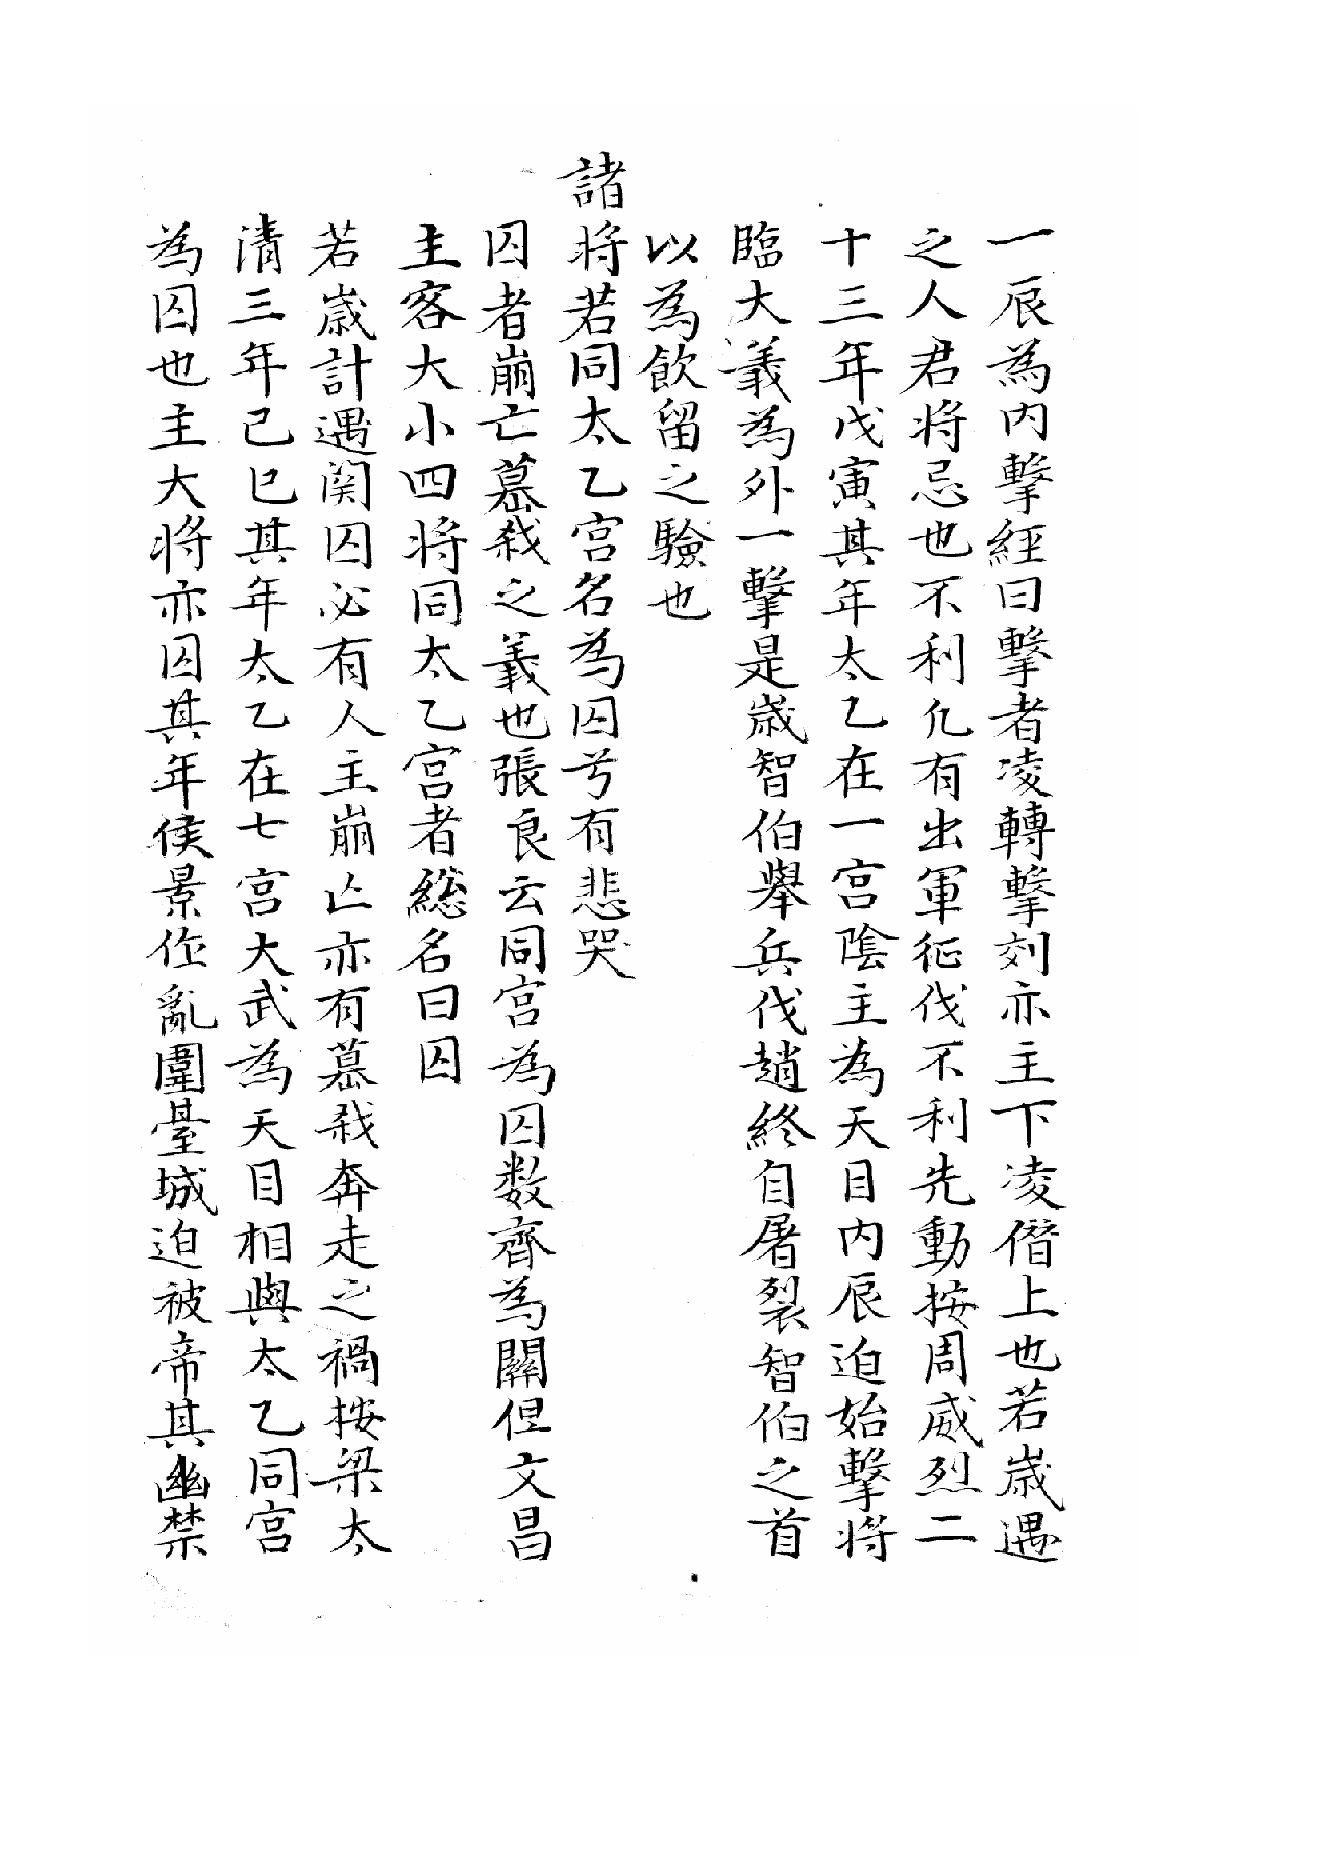 一辰為内擊經曰擊者凌轉擊刻亦主下凌僭上也若歲遇
之人君将忌也不利凢有出軍征伐不利先動按周威烈二
十三年戊寅其年太乙在一宫陰主為天目内辰迫始擊将
臨大義為外一擊是歲智伯舉兵伐趙終自屠裂智伯之首
以為飲留之驗也
諸将若同太乙宫名為囚兮有悲哭
囚者崩亡慕殺之義也張良云同宫為囚数齊為關但文昌
主客大小四将同太乙宫者總名曰囚
若歲計遇関囚必有人主崩亡亦有慕殺奔走之禍按梁太
清三年己巳其年太乙在七宫大武為天目相與太乙同宫
為囚也主大将亦囚其年侯景作亂圍臺城迫被帝其幽禁